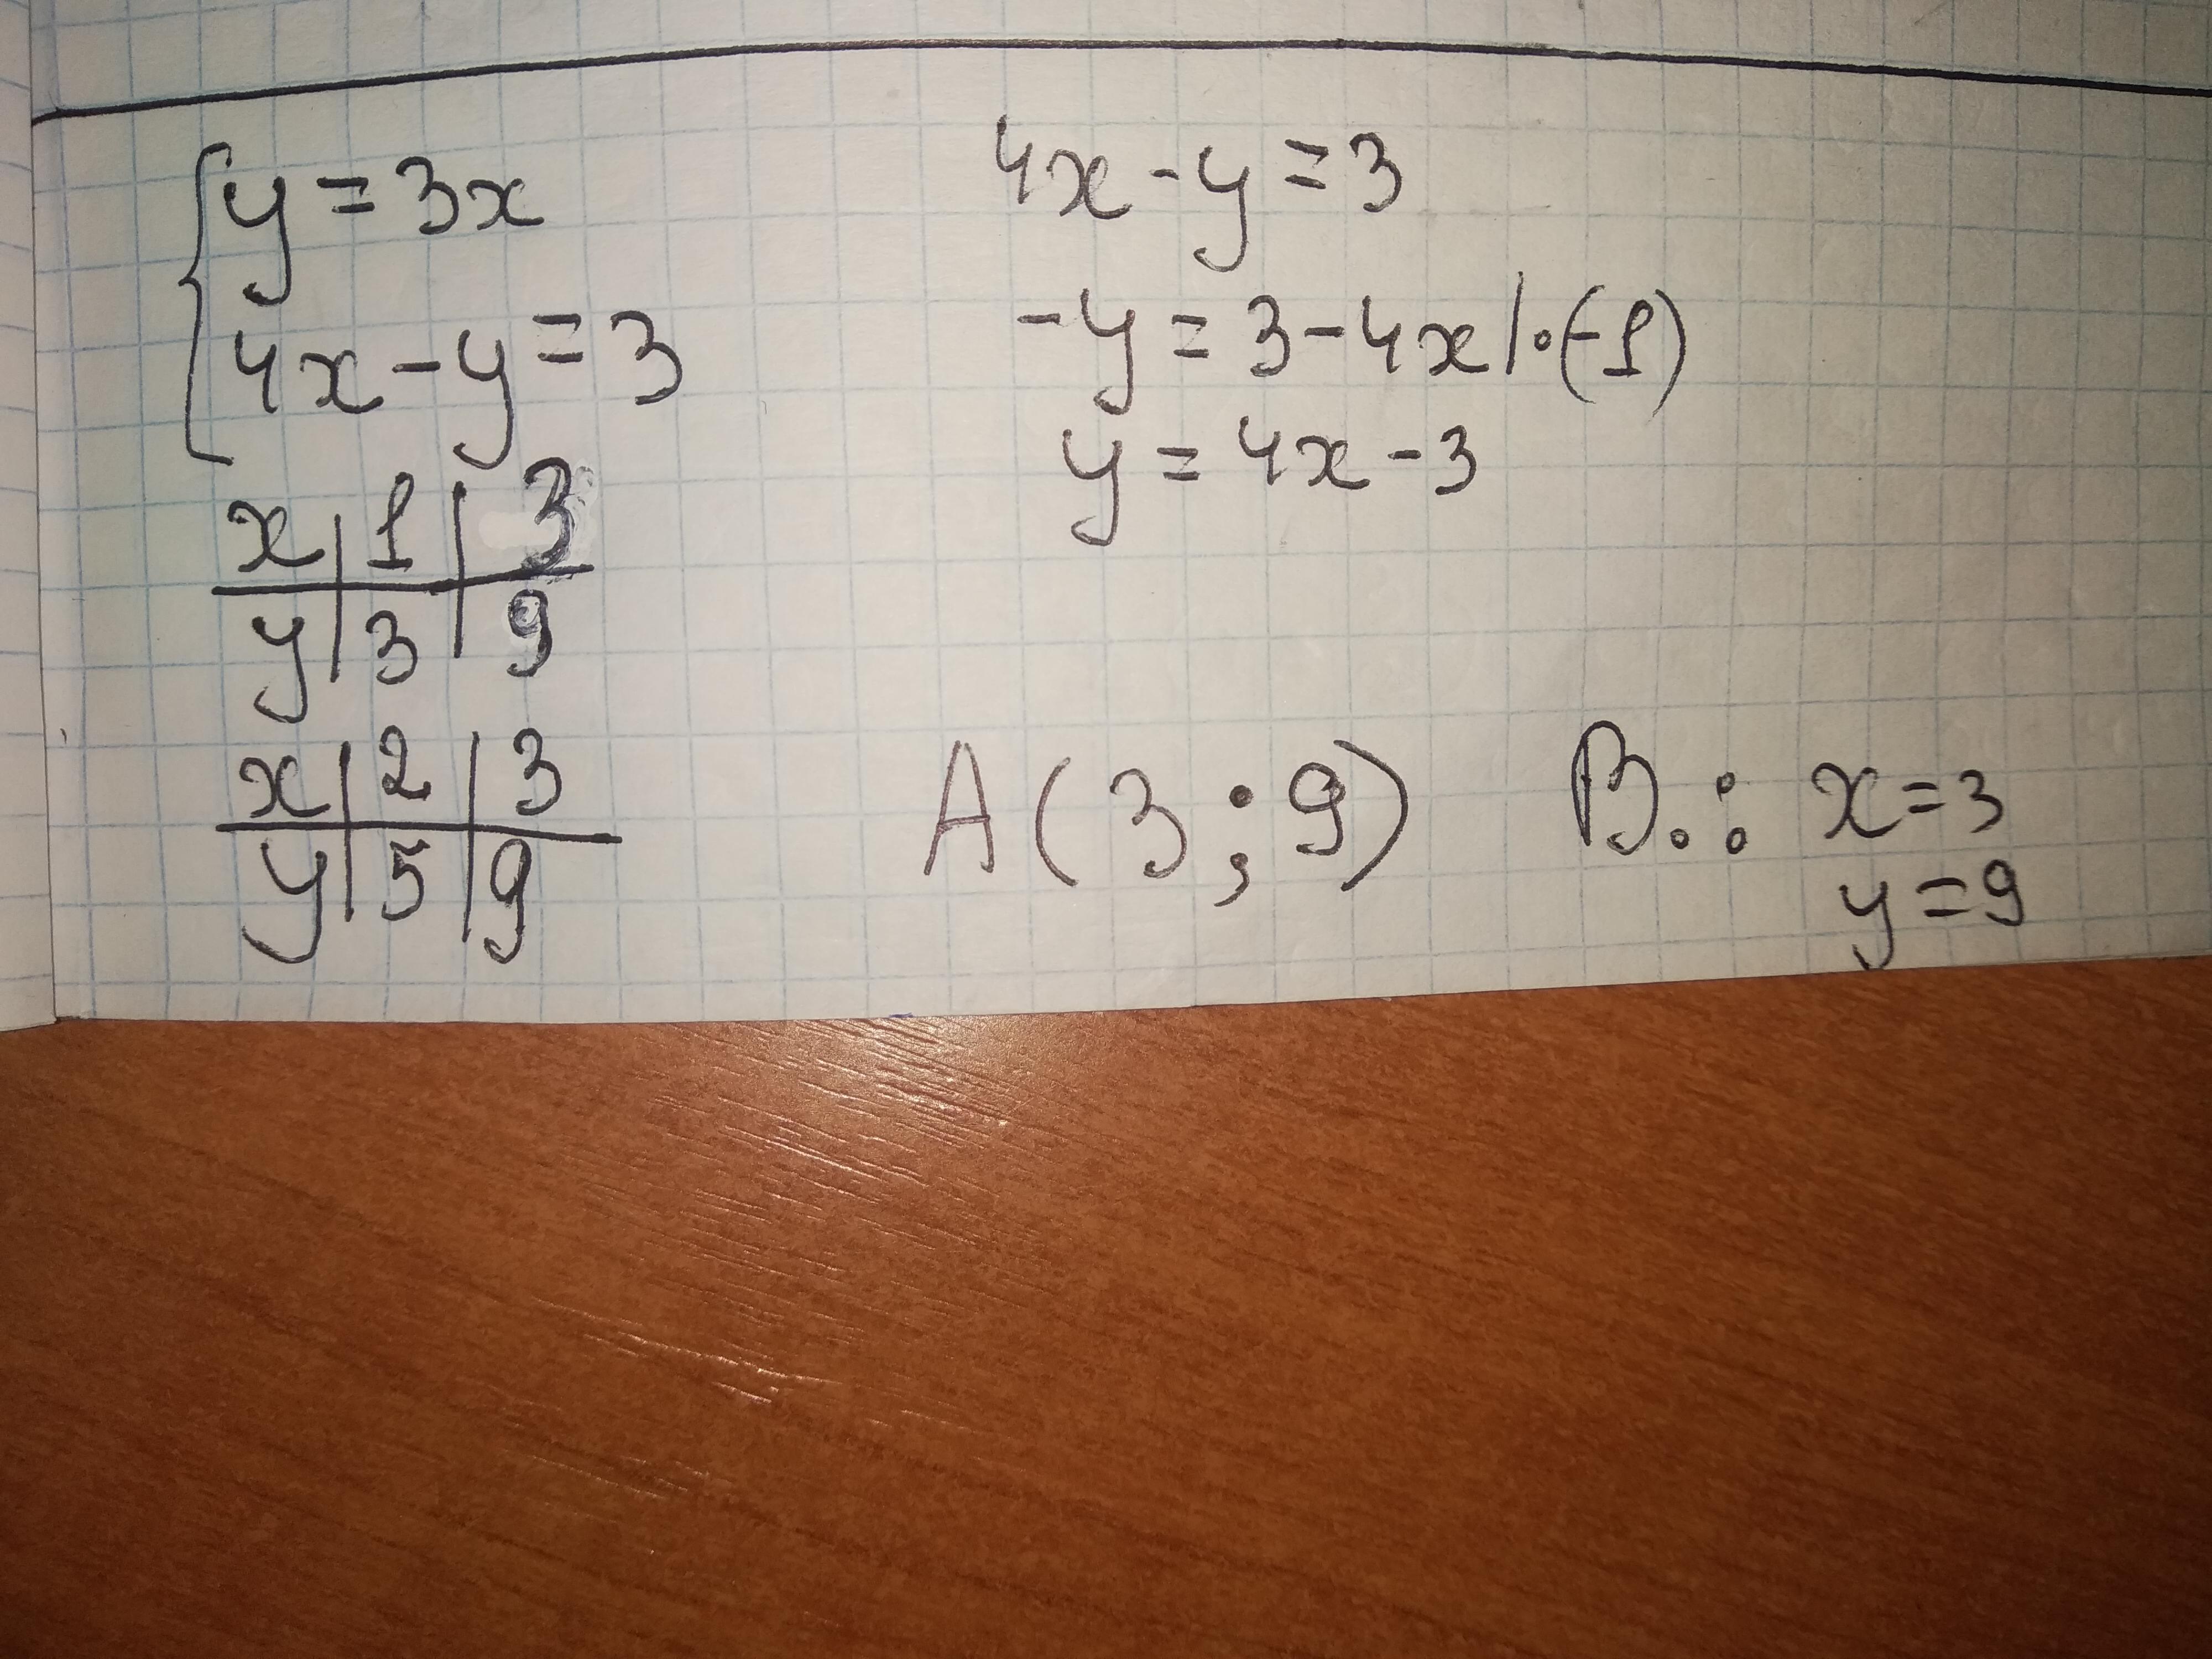 {y = 3x
4x - y = 3
x | 1 | 3
y | 3 | 9
x | 2 | 3
y | 5 | 9
4x - y = 3
-y = 3 - 4x | ·(-1)
y = 4x - 3
A (3 ; 9)
В.: x = 3
y = 9